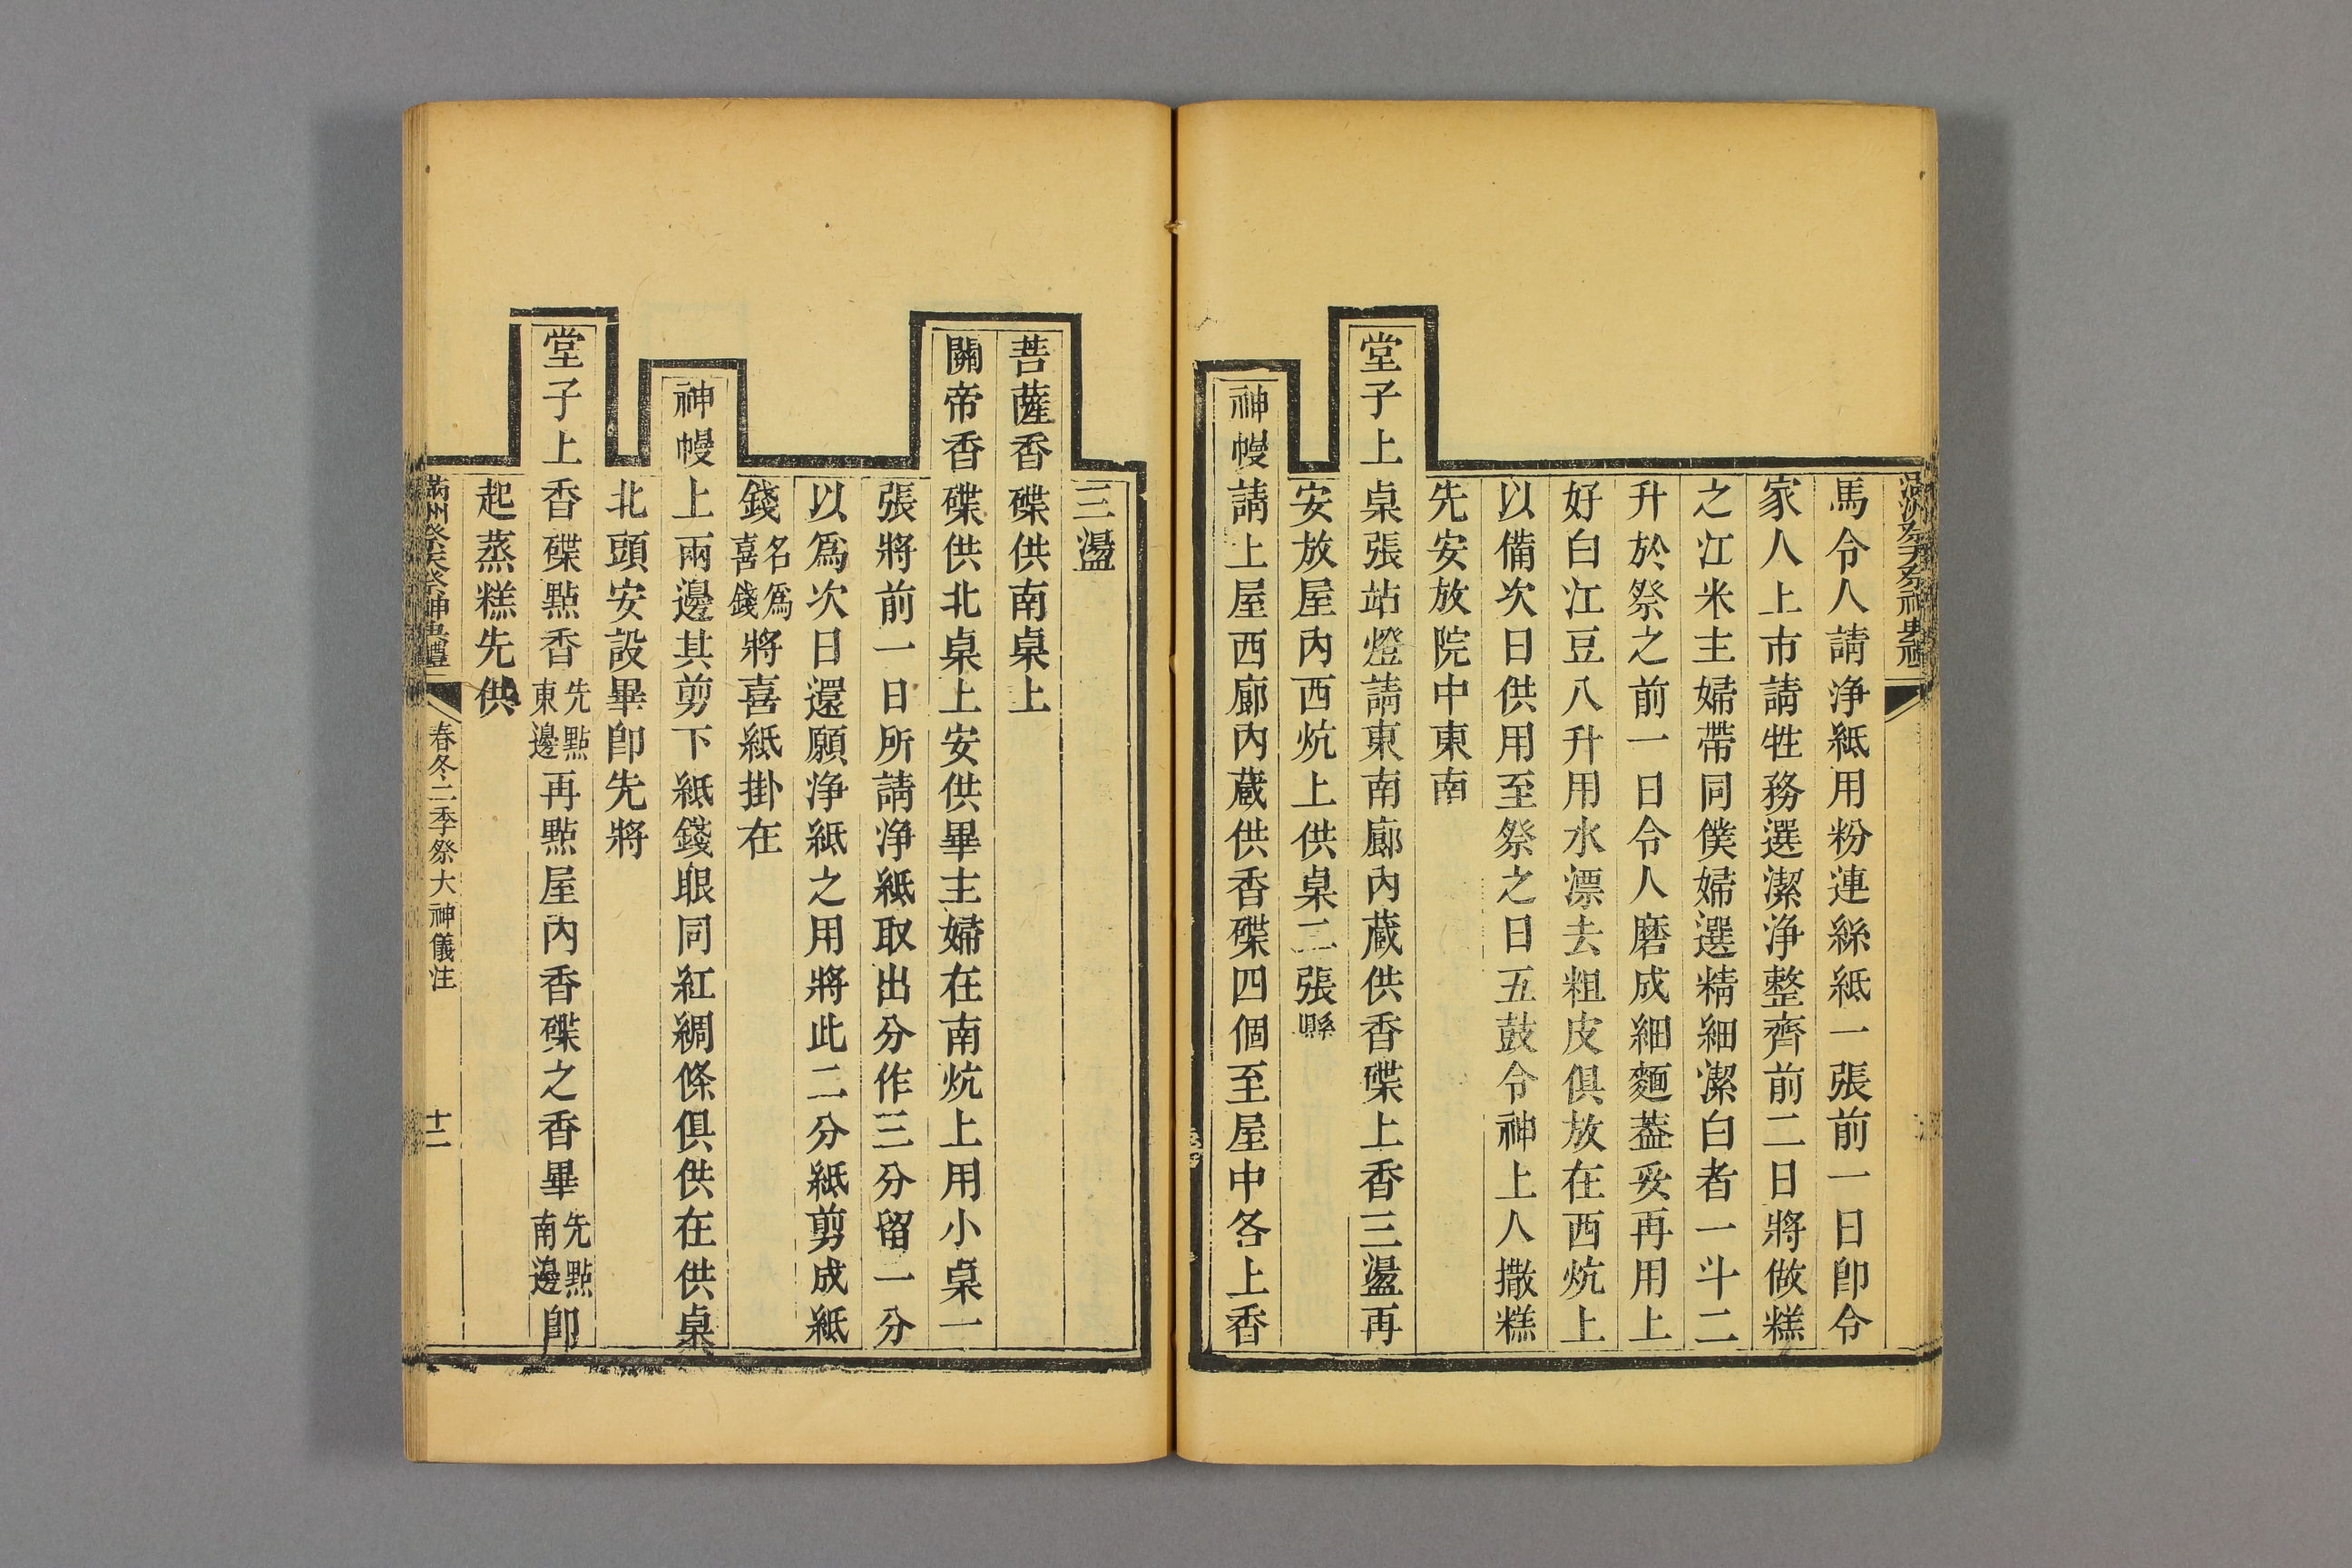 馬令人請浄紙用粉連絲紙一張前一日卽令
家人上市請牲務選潔浄整齊前二日將做糕
之江米主婦帶同僕婦選精細潔白者一斗二
升於祭之前一日令人磨成細麵葢妥再用上
好白江豆八升用水漂去粗皮俱放在西炕上
以備次日供用至祭之日五鼓令神上人撒糕
先安放院中東南
堂子上桌張站燈請東南廊內蔵供香碟上香三盪再
安放屋內西炕上供桌二張縣
神幔請上屋西廊內蔵供香碟四個至屋中各上香
三盪
菩薩香碟供南桌上
關帝香碟供北桌上安供畢主婦在南炕上用小桌一
張將前一日所請浄紙取出分作三分留一分
以爲次日還願浄紙之用將此二分紙剪成紙
錢名爲喜錢將喜紙掛在
神幔上兩邊其剪下紙錢眼同紅綢條俱供在供桌
北頭安設畢卽先將
堂子上香碟點香先點東邊再點屋內香碟之香畢先點南邊卽
起蒸糕先供
滿洲祭天祭神典禮
春冬二季祭大神儀注
十二